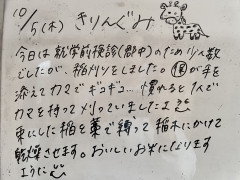 10/5(木) きりんぐみ
今日は就学前検診(郡中)のため少人数
でしたが、稲刈りをしました。保が手を
添えてカマでギコギコ…慣れると1人で
カマを持って刈っていましたよ
束にした稲を藁で縛って稲木にかけて
乾燥させます。おいしいお米になります
ように